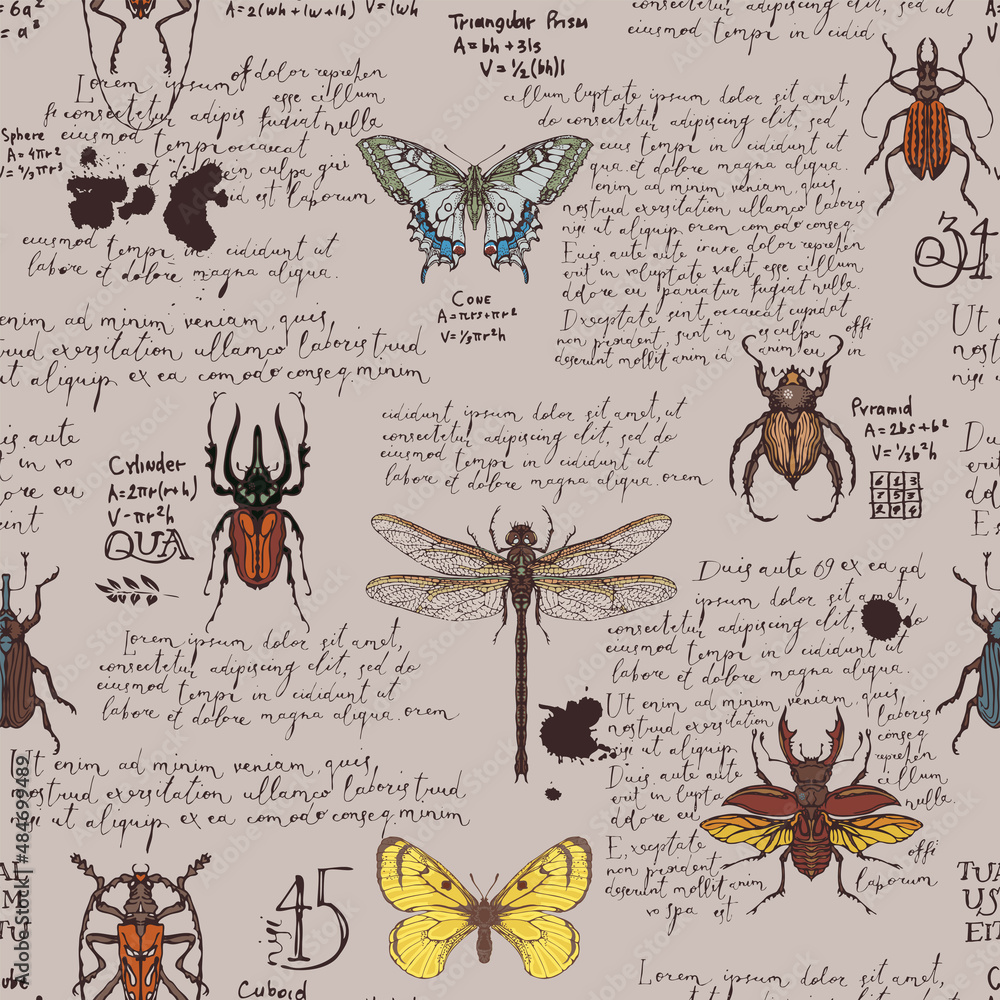 = 6a²
= a³
A = 2(wh + (w + lh)
V = lwh
Triangular Prism
A = bh + 3ls
V = ½(bh)l
consectetur adipiscing elit, sed do
eiusmod tempi in cidid
Lorem ipsum of dolor reprehen
esse cillum
consectetur adipis fugiat nulla
eiusmod tempi occaecat
in culpa qui
id est laborum
Sphere
A = 4πr²
V = 4/3πr³
eiusmod tempi in cididunt ut
labore et dolore magna aliqua.
cillum luptate ipsum dolor sit amet,
do consectetur, adipiscing elit, sed do
eius tempi in cididunt ut labore
qua.et dolore magna aliqua.
enim ad minim veniam, quis,
nostrud exersitation ullamco laboris
nisi ut aliquip ex ea comodo conseq.
Euis aute aute irure dolor reprehen
erit in voluptate velit esse cillum
dolore eu pariatur fugiat nulla.
Dxceptate sint occaecat cupidat
non proident, sunt in es culpa offi
deserunt mollit anim id anim eu in
31
Q
Cone
A = πrs + πr²
V = ⅓πr²h
enim ad minim veniam, quis,
trud exersitation ullamco laboris trud
ut aliquip ex ea comodo conseq.minim
Ut
nost
nisi
Pyramid
A = 2bs + b²
V = ⅓b²h
cididunt ipsum dolor sit amet, ut
consectetur adipiscing elit, sed do
eiusmod tempi in cididunt ut
labore et dolore magna aliqua. orem
is aute
t in vo
lore eu
int
Cylinder
A = 2πr(r+h)
V - πr²h
QUA
Duis aute 69 ex ea ad
ipsum dolor sit amet,
consectetur, adipiscing elit, sed do
eiusmod tempi in cididunt ut
labore et dolore magna aliqua.
Lorem ipsum dolor sit amet,
consectetur adipiscing elit, sed do
eiusmod tempi in cididunt ut
labore et dolore magna aliqua. orem
Ut enim ad minim veniam, quis,
nostrud exersitation
nisi ut aliquip
laboris
conseq
reprehen
cillum
nulla.
Duis aute aute
erit in lupta
dolore eu
E,xceptate
non proident
deserunt mollit anim
vo spa est
offi
laborum
Ut enim ad minim veniam, quis,
nostrud exersitation ullamco laboris trud
si ut aliquip ex ea comodo conseq.minim
45
TUA
US
EIT
Cuboid
Lorem ipsum dolor sit amet,
consectetur adipiscing elit, sed do
Adobe Stock | #484699489